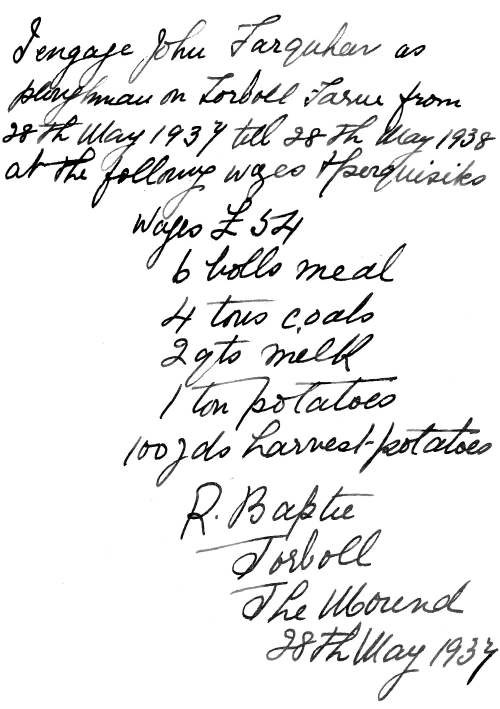 I engage John Farquhar as
ploughman on Torboll Farm from
28th May 1937 till 28th May 1938
at the following wages & perquisites
Wages £54
6 bolls meal
4 tons coals
2 qts milk
1 ton potatoes
100 yds harvest-potatoes
R. Baptie
Torboll
The Mound
28th May 1937